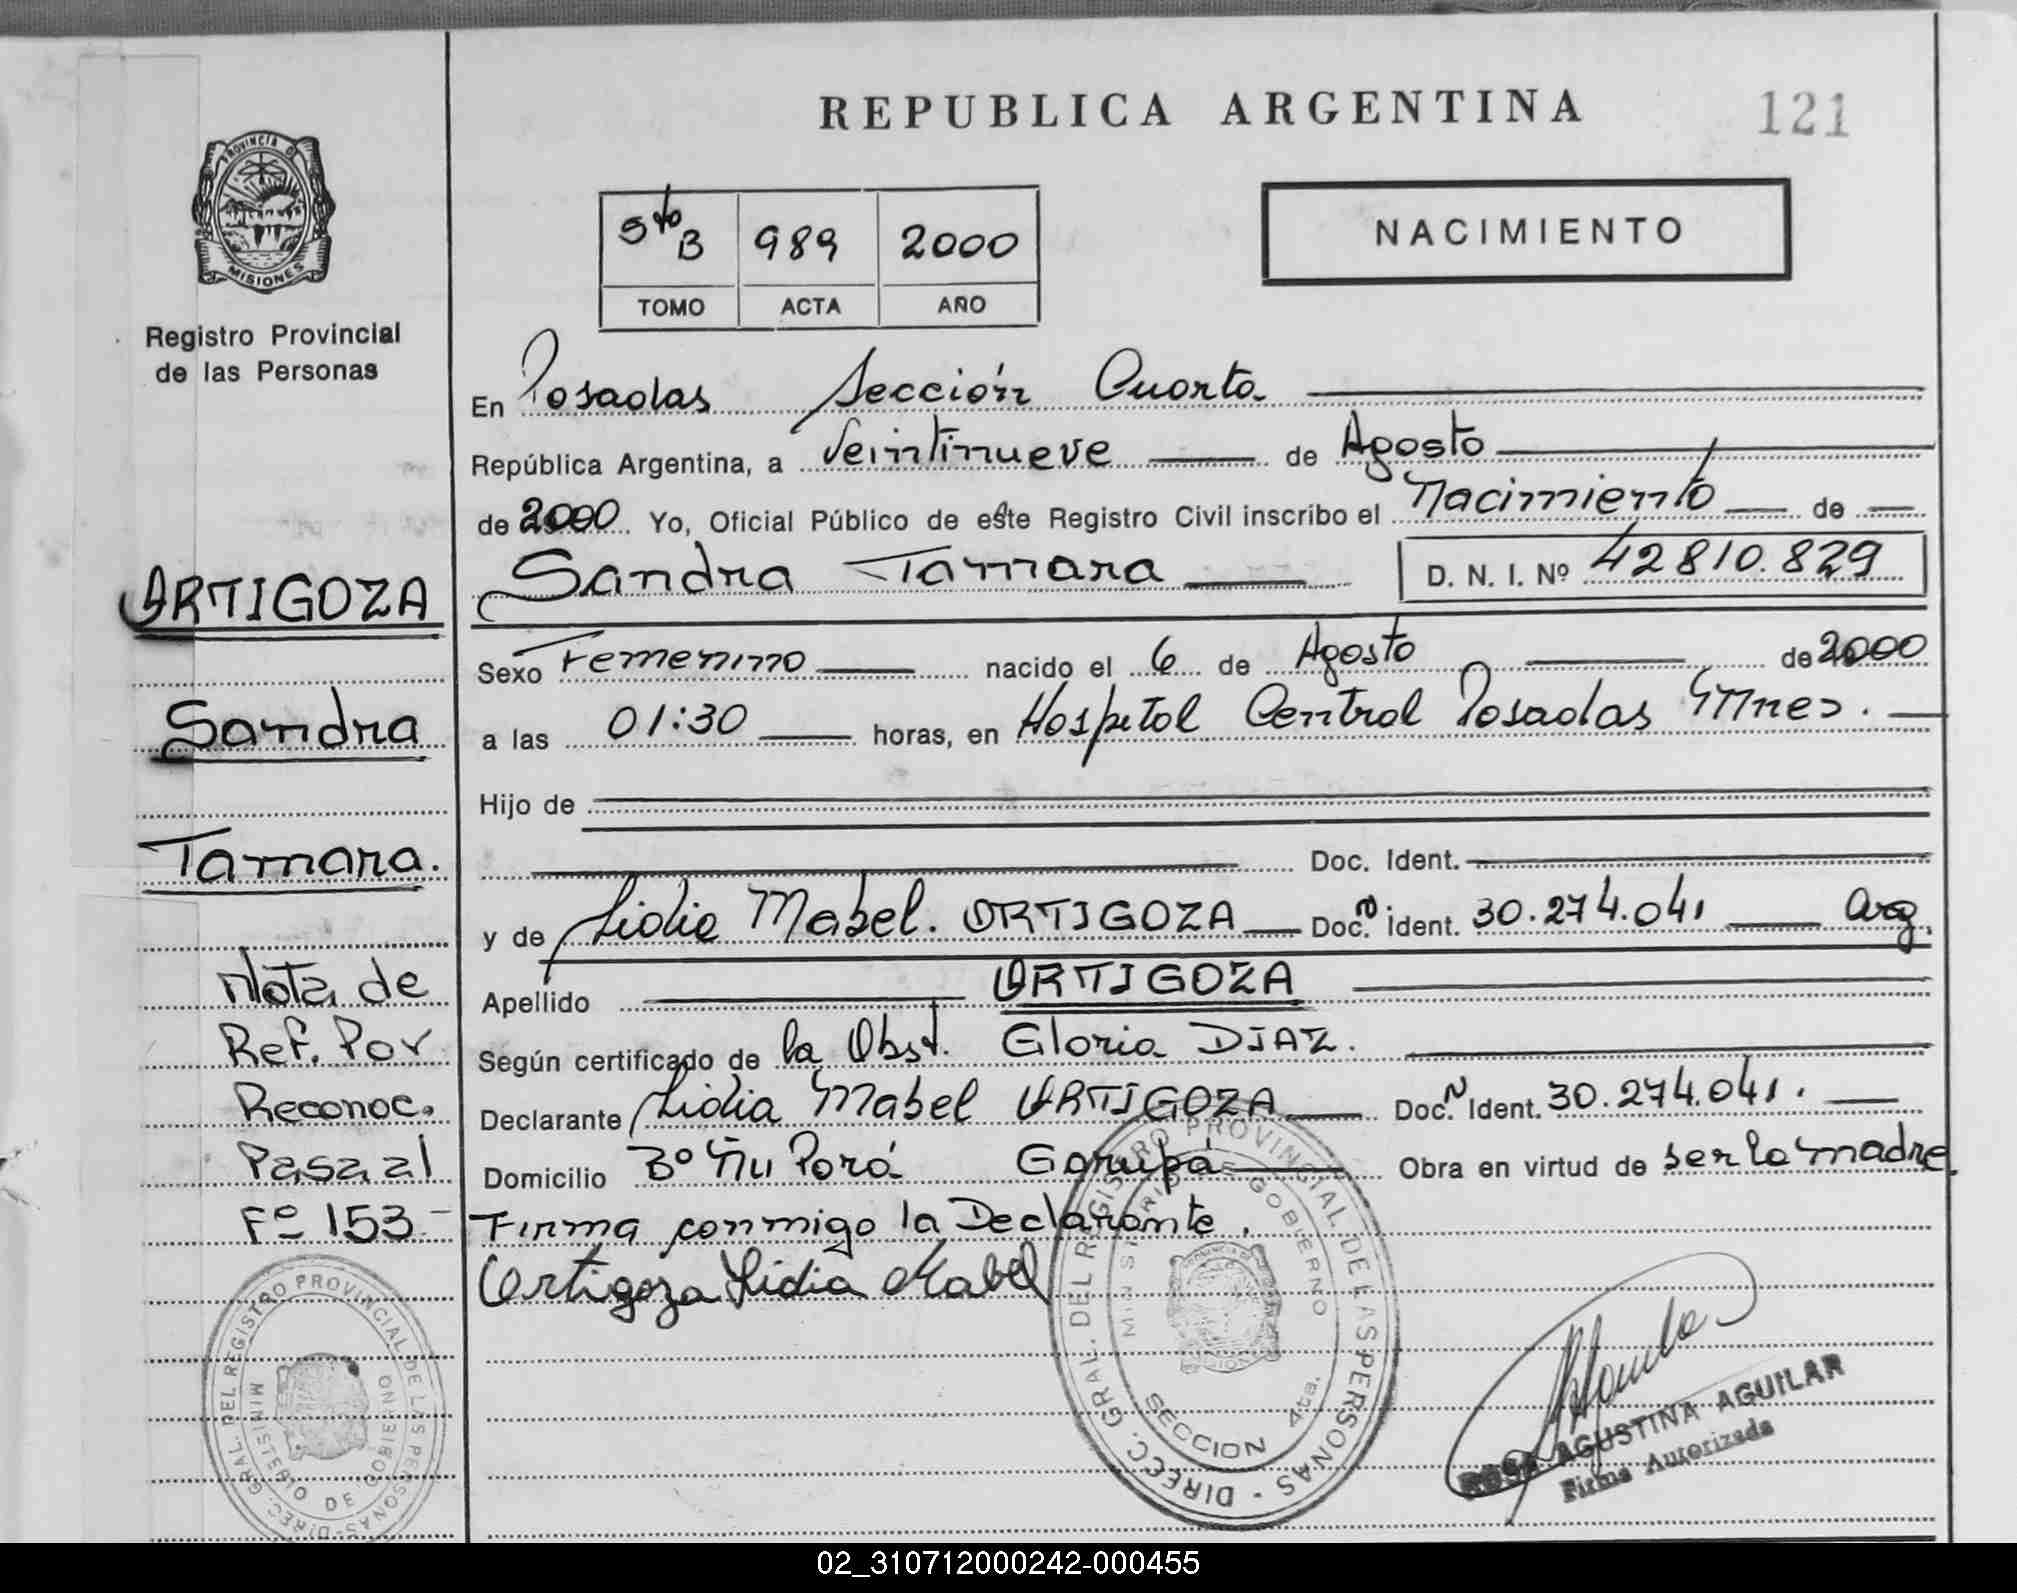 REPUBLICA ARGENTINA
121
PROVINCIA DE
MISIONES
Registro Provincial
de las Personas
NACIMIENTO
5to B 989 2000
TOMO ACTA AÑO
En Posadas Sección Cuarta
República Argentina, a Veintinueve de Agosto
de 2000 Yo, Oficial Público de este Registro Civil inscribo el Nacimiento de
Sandra Tamara D. N. I. Nº 42810.829
Sexo Femenino nacido el 6 de Agosto de 2000
a las 01:30 horas, en Hospital Central Posadas Mnes.
Hijo de
Doc. Ident.
y de Lidia Mabel. ORTIGOZA Doc. N Ident. 30.274.041 Arg.
Apellido ORTIGOZA
Según certificado de la Obst. Gloria DIAZ.
Declarante Lidia Mabel ORTIGOZA Doc. N Ident. 30.274.041.
Domicilio Bº Ñu Porá Garupá Obra en virtud de ser la madre
Firma conmigo la Declarante.
Ortigoza Lidia Mabel
ORTIGOZA
Sandra
Tamara.
Nota de
Ref. Por
Reconoc.
Pasa al
Fº 153
DIREC. GRAL. DEL REGISTRO PROVINCIAL DE LAS PERSONAS
MINISTERIO DE GOBIERNO
DIREC. GRAL. DEL REGISTRO PROVINCIAL DE LAS PERSONAS
MINISTERIO GOBIERNO
SECCION 4ta.
ROSA AGUSTINA AGUILAR
Firma Autorizada
02_310712000242-000455